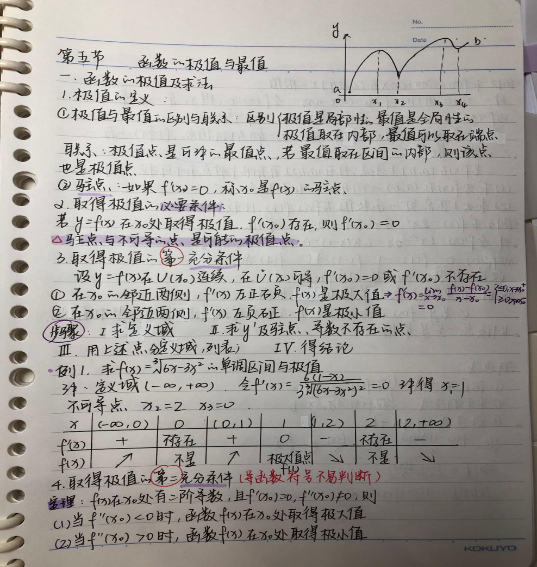 No.
Date
y
b
a
0 x₁ x₂ x₃ x₄
第五节 函数的极值与最值
一、函数的极值及求法
1.极值的定义
①极值与最值的区别与联系:区别{极值是局部性的,最值是全局性的
极值取在内部,最值可以取在端点
联系:极值点是可疑的最值点,若最值取在区间的内部,则该点
也是极值点
②驻点:如果f'(x₀)=0,称x₀是f(x)的驻点、
2.取得极值的必要条件:
若y=f(x)在x₀处取得极值,f'(x₀)存在,则f'(x₀)=0
△驻点与不可导的点,是可能的极值点。
3.取得极值的第一充分条件
设y=f(x)在U(x₀)连续,在Ů(x₀)可导,f'(x₀)=0或f'(x₀)不存在
①在x₀的邻近两侧,f'(x)左正右负,f(x)是极大值
=0
②在x₀的邻近两侧,f'(x)左负右正,f(x)是极小值
步骤:I求定义域 II.求y'及驻点、导数不存在的点、
III.用上述点分定义域,列表) IV.得结论
例1.求f(x)=³√6x²-x³的单调区间与极值
解:定义域(-∞,+∞) 令f'(x)= =0 解得x₁=1
不可导点 x₂=2 x₃=0
x (-∞,0) 0 (0,1) 1 (1,2) 2 (2,+∞)
f'(x) + 不存在 + 0 - 不存在 -
f(x) ↗ 不是 ↗ 极大值点 f(1) ↘ 不是 ↘
4.取得极值的第二充分条件(导函数符号不易判断)
定理:f(x)在x₀处有二阶导数,且f'(x₀)=0,f''(x₀)≠0,则
(1)当f''(x₀)<0时,函数f(x)在x₀处取得极大值
(2)当f''(x₀)>0时,函数f(x)在x₀处取得极小值
KOKUYO